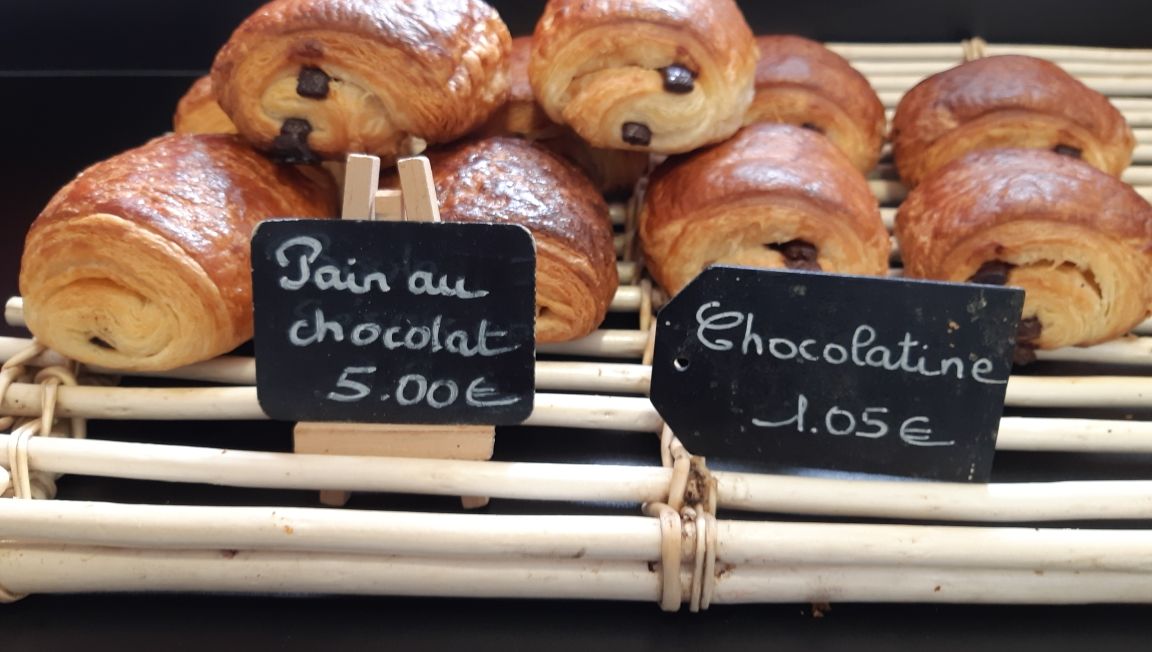 Pain au
chocolat
5.00€
Chocolatine
1.05€